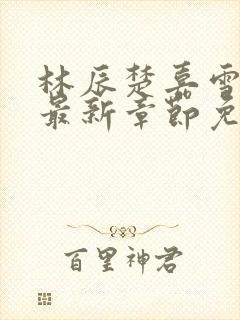 林辰楚嘉雪
最新章节免
百里神君